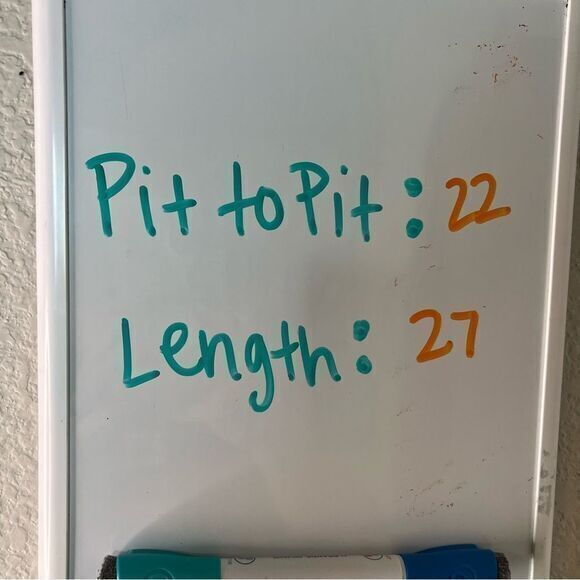 Pit to Pit: 22
Length: 27